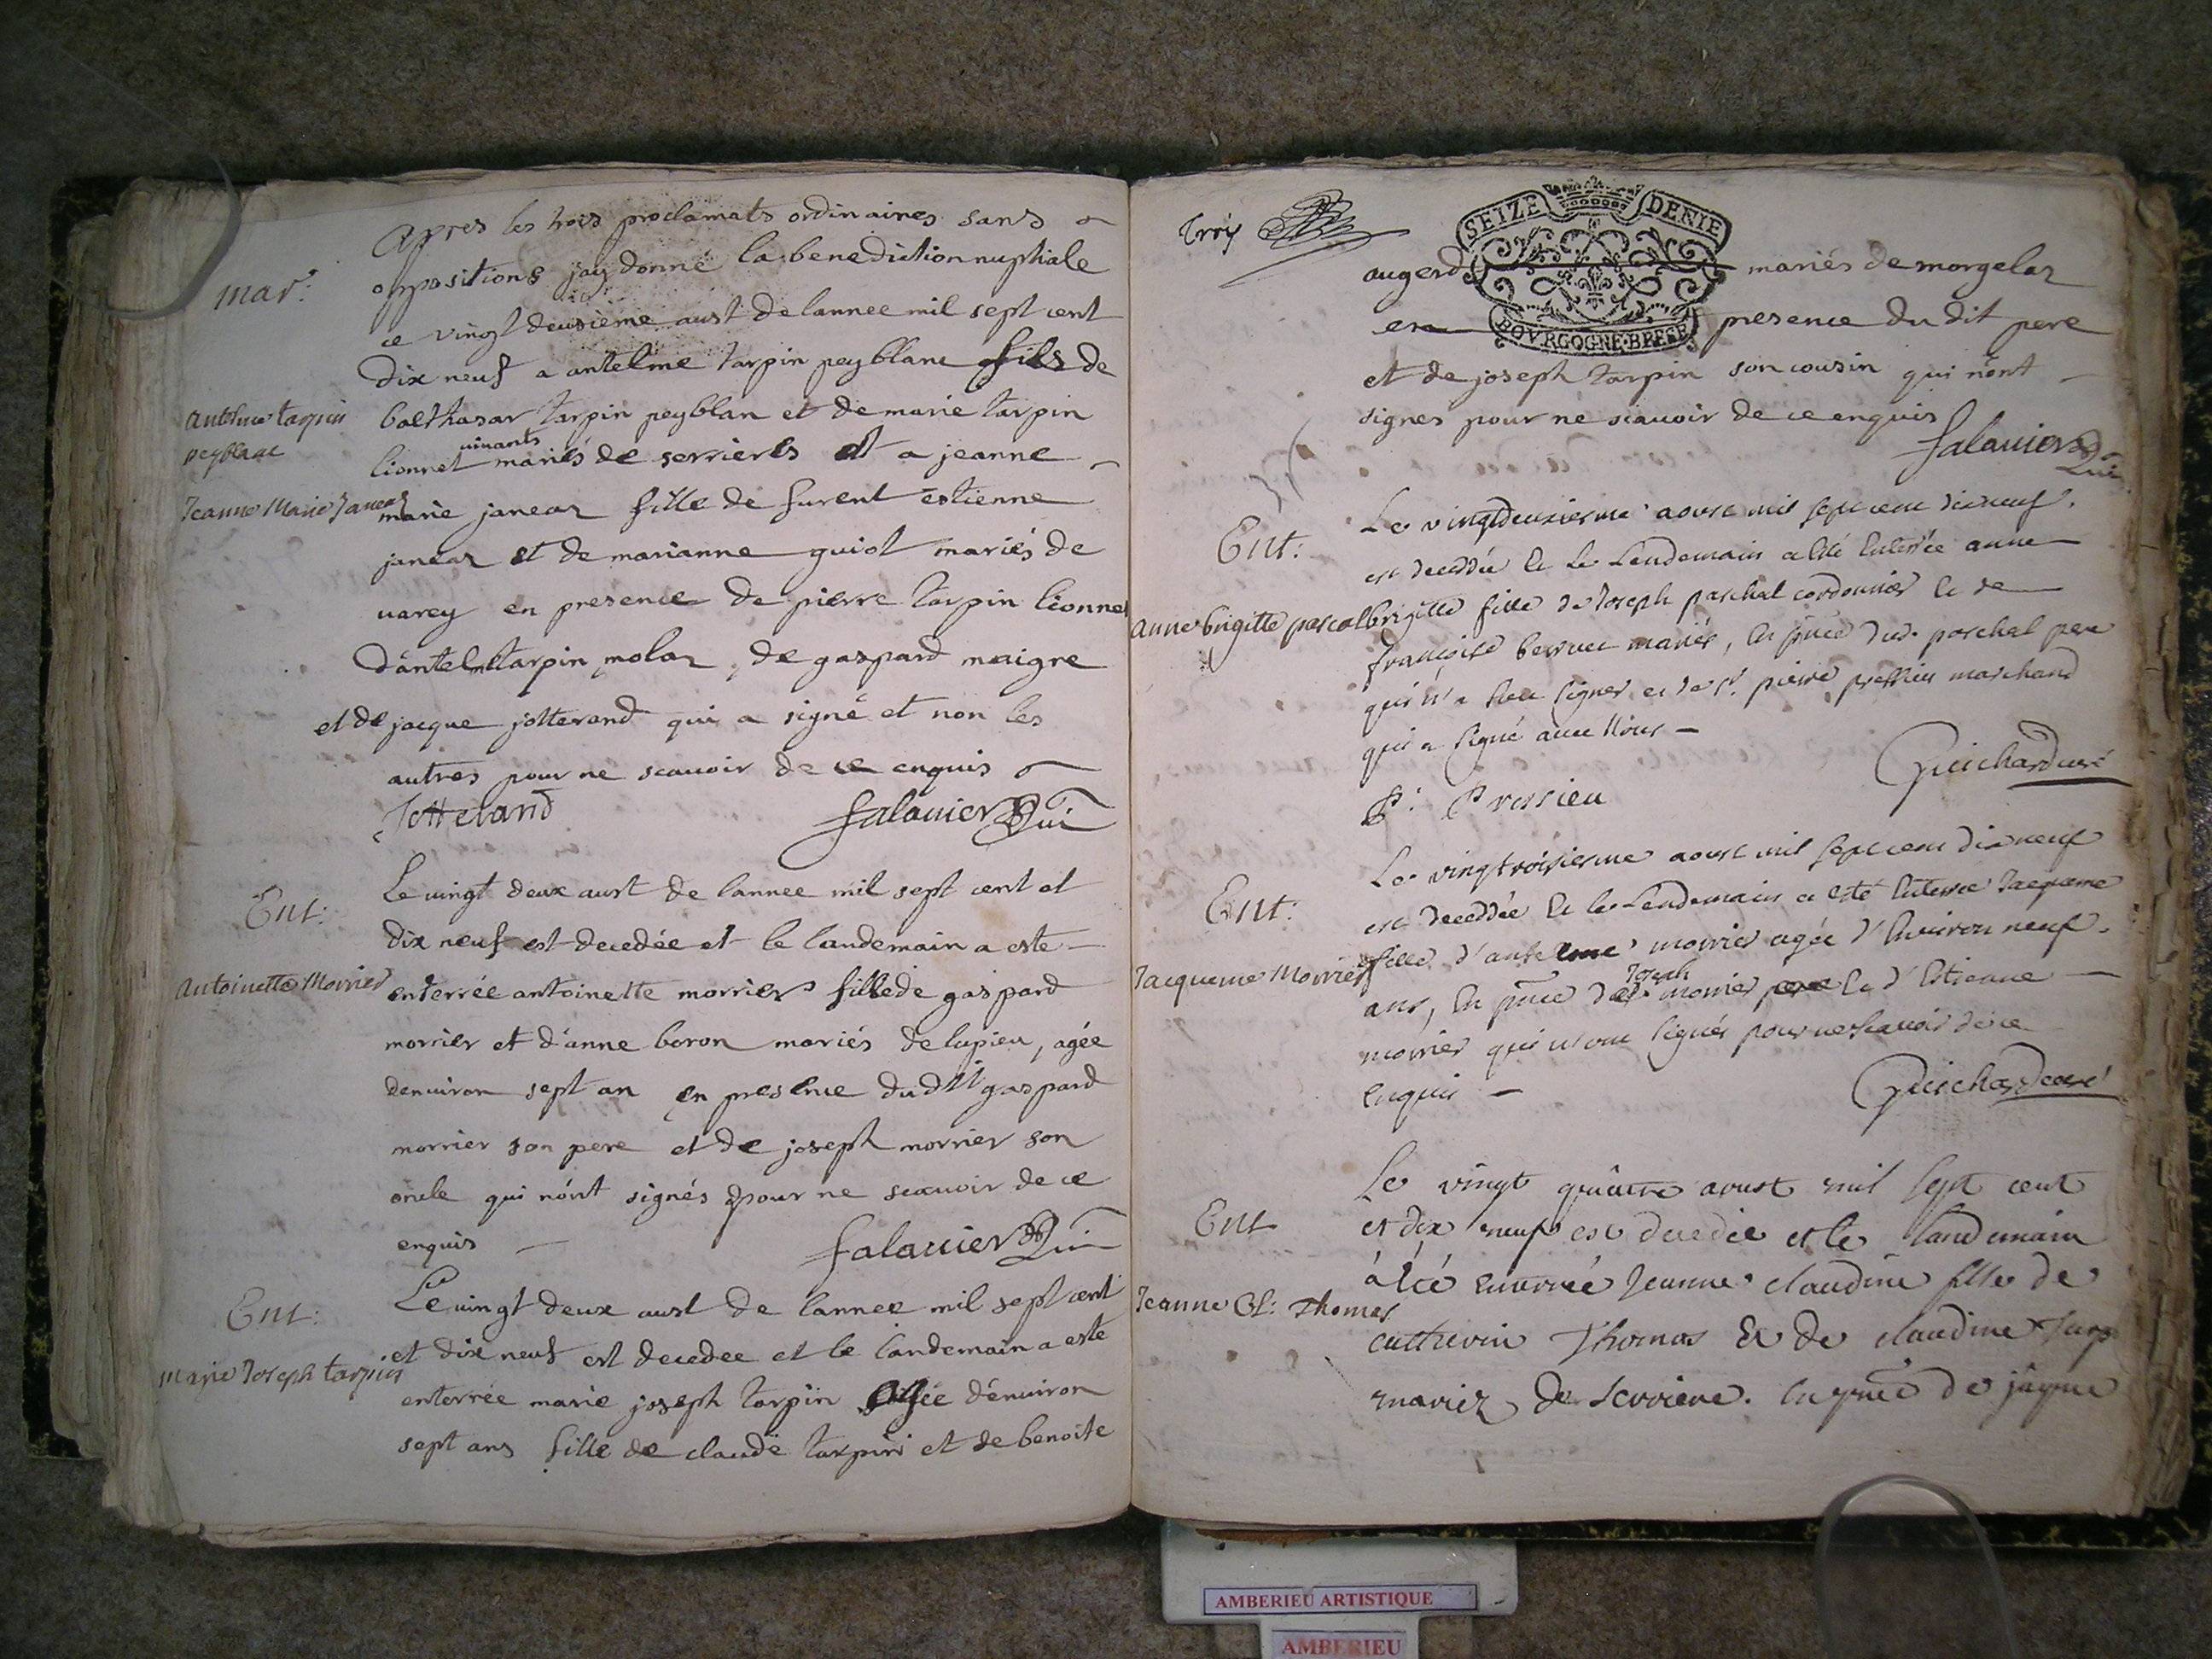 apres les trois proclamats ordinaires sans
mar:
oppositions jay donné la benediction nuptiale
ce vingt deusième aust de lannee mil sept cent
dix neuf a antelme tarpin peyblanc fils de
Antelme tarpin
peyblanc
balthasar tarpin peyblan et de marie tarpin
vivants
lionnet mariés de serrieres et a jeanne
Jeanne Marie Janear
marie janear fille de furent estienne
janear et de marianne guiot mariés de
varey en presence de pierre tarpin lionnet
d'antelme tarpin molar, de gaspard maigre
et de jacque jotterand qui a signé et non les
autres pour ne scavoir de ce enquis
Jotterand
falavier
Ent:
Le vingt deux aust de lannee mil sept cent et
dix neuf est decedée et le landemain a este
Antoinette Morrier
enterrée antoinette morrier fille de gaspard
morrier et d'anne boron mariés de lupieu, agée
denviron sept an en presence dudit gaspard
morrier son pere et de joseph morrier son
oncle qui n'ont signés pour ne scavoir de ce
enquis
falavier
Ent:
Le vingt deux aust de lannee mil sept cent
et dix neuf est decedee et le landemain a este
Marie Joseph tarpin
enterrée marie joseph tarpin agée d'environ
sept ans fille de claude tarpin et de benoite
trois
SEIZE DENIE
BOVRGOGNE·BRESE
augerd mariés de morgelas
en presence du dit pere
et de joseph tarpin son cousin qui n'ont
signes pour ne scavoir de ce enquis
falavier
Ent:
Le vingtdeuxiesme aoust mil sept cent dixneuf
est deceddée et le Lendemain a esté Enterrée anne
Anne brigitte pascal
brigitte fille de Joseph paschal cordonnier et de
françoise berruet mariés, en p̃nce dud. paschal pere
qui n'a sceu signer et de sr. pierre pressieu marchand
qui a signé avec Nous
Guichard curé
P: Pressieu
Ent:
Le vingtroisiesme aoust mil sept cent dix neuf
est deceddée et le Lendemain a esté Enterrée Jacqueme
Jacqueme Morrier
fille d'antelme morrier agée d'Environ neuf
Joseph
ans, En p̃nce dud. morrier pere et d'Estienne
morrier qui n'ont signés pour ne scavoir de ce
Enquis
Guichard curé
Ent
Le vingt quattre aoust mil sept cent
et dix neuf est decedée et le landemain
Jeanne Cl: Thomas
à été enterrée Jeanne claudine fille de
cathevin Thomas Et de claudine Tarp
mariez de Serriere. En p̃nce de jâque
AMBERIEU ARTISTIQUE
AMBERIEU